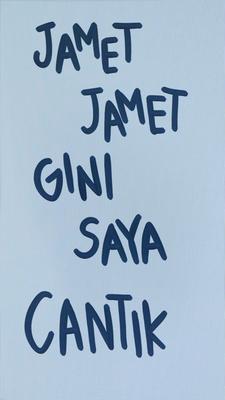 JAMET
JAMET
GINI
SAYA
CANTIK